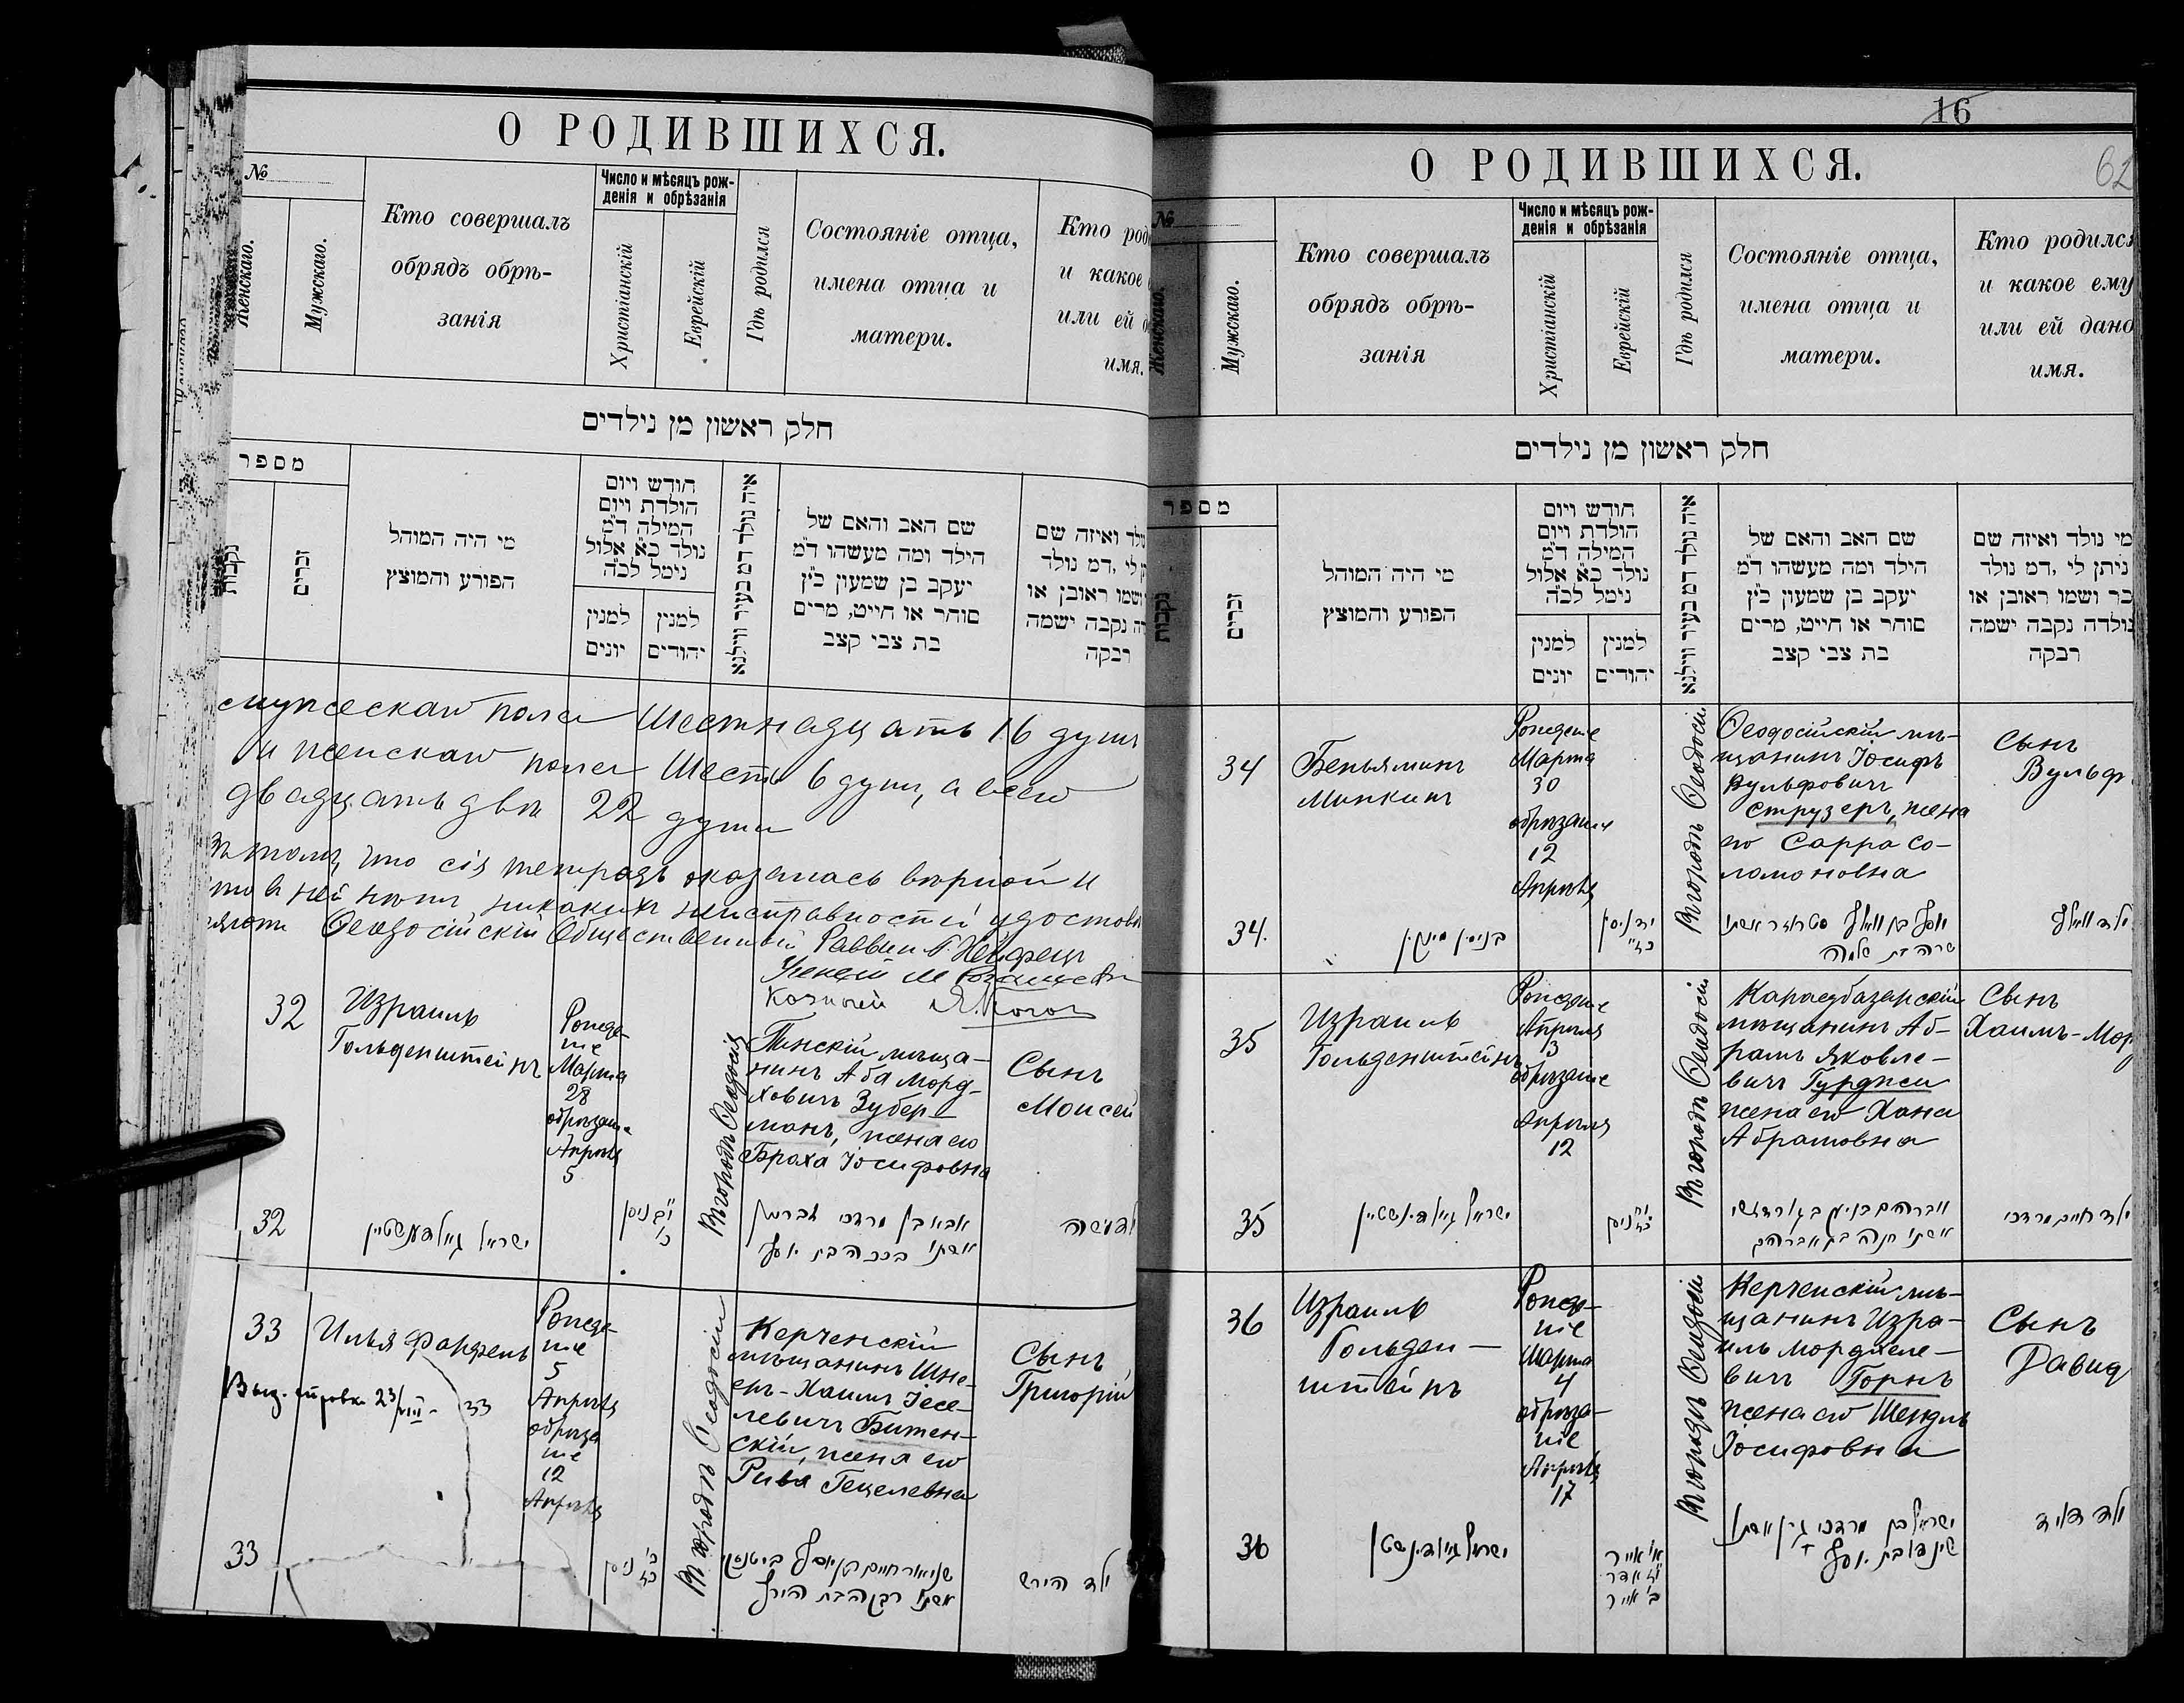 О РОДИВШИХСЯ.
№
Женскаго.
Мужскаго.
Кто совершалъ
обрядъ обрѣ-
занія
Число и мѣсяцъ рож-
денія и обрѣзанія
Христіанскій
Еврейскій
Гдѣ родился
Состояніе отца,
имена отца и
матери.
Кто род
и какое
или ей
имя.
חלק ראשון מן נילדים
מספר
נקבות
זכרים
מי היה המוהל
הפורע והמוצץ
חודש ויום
הולדת ויום
המילה ד״מ
נולד כ״א אלול
נימל לכ״ה
למנין
יונים
למנין
יהודים
איה נולד דמ בעיר ווילנא
שם האב והאם של
הילד ומה מעשהו ד״מ
יעקב בן שמעון כ״ץ
סוחר או חייט, מרים
בת צבי קצב
ולד ואיזה שם
לי, דמ נולד
ושמו ראובן או
נקבה ישמה
רבקה
мужескаго пола Шестнадцать 16 душъ
и женскаго пола Шесть 6 душ, а всего
двадцать двѣ 22 души
томъ, что сія тетрадь оказалась вѣрной и
въ ней нѣтъ никакихъ неисправностей удостовѣ
ряютъ Ѳеодосійскій Общественный Раввин
Казначей
32
Израиль
Гольденштейнъ
Рожде-
ніе
Марта
28
обрѣзаніе
Апрѣля
5
Въ городѣ Ѳеодосіи
Пинскій мѣща-
нинъ Аба Морд-
ховичъ Зубер-
манъ, жена его
Браха Іосифовна
Сынъ
Моисей
32
ישראל גאלדענשטיין
ניסן
אבא בן מרדכי
אשתו ברכה בת יוסף
ילד משה
33
Илья Фарфель
33
Рожде-
ніе
5
Апрѣля
обрѣза
ніе
12
Апрѣля
Въ городѣ Ѳеодосіи
Керченскій
мѣщанинъ Шне-
еръ-Хаимъ Іосе-
левичъ Битен-
скій, жена его
Рива Гецелевна
Сынъ
Григорій
33
ניסן
שניאור חיים בן יוסף ביטנסקי
אשתו רבקה בת
ילד הירש
16
62
О РОДИВШИХСЯ.
№
Женскаго.
Мужскаго.
Кто совершалъ
обрядъ обрѣ-
занія
Число и мѣсяцъ рож-
денія и обрѣзанія
Христіанскій
Еврейскій
Гдѣ родился
Состояніе отца,
имена отца и
матери.
Кто родился
и какое ему
или ей дано
имя.
חלק ראשון מן נילדים
מספר
נקבות
זכרים
מי היה המוהל
הפורע והמוצץ
חודש ויום
הולדת ויום
המילה ד״מ
נולד כ״א אלול
נימל לכ״ה
למנין
יונים
למנין
יהודים
איה נולד דמ בעיר ווילנא
שם האב והאם של
הילד ומה מעשהו ד״מ
יעקב בן שמעון כ״ץ
סוחר או חייט, מרים
בת צבי קצב
מי נולד ואיזה שם
ניתן לי, דמ נולד
בר ושמו ראובן או
נולדה נקבה ישמה
רבקה
34
Беньяминъ
Минкинъ
Рожденіе
Марта
30
обрѣзаніе
12
Апрѣля
Въ городѣ Ѳеодосіи
Ѳеодосійскій мѣ-
щанинъ Іосифъ
Вульфовичъ
Струзеръ, жена
его Сарра Со-
ломоновна
Сынъ
Вульф
34.
בנימין מינקין
ניסן
יוסף בן וואלף סטרוזר אשתו
שרה בת שלמה
ילד וואלף
35
Израиль
Гольденштейнъ
Рожденіе
Апрѣля
3
обрѣзаніе
Апрѣля
12
Въ городѣ Ѳеодосіи
Карасубазарскій
мѣщанинъ Аб-
рамъ Яковле-
вичъ Гурджи
жена его Хана
Абрамовна
Сынъ
Хаимъ-Мор
35
ישראל גאלדינשטיין
ניסן
אברהם בן יעקב גורדזשי
אשתו חנה בת אברהם
ילד חיים מרדכי
36
Израиль
Гольден-
штейнъ
Рожде-
ніе
Марта
4
обрѣза-
ніе
Апрѣля
17
Въ городѣ Ѳеодосіи
Керченскій мѣ-
щанинъ Изра-
иль Морджеле-
вичъ Горнъ
жена его Шендль
Іосифовна
Сынъ
Давид
36
ישראל גאלדינשטין
א׳ אייר
אדר
ב׳ אייר
ישראל בן מרדכי גורן אשתו
שינדל בת יוסף
ילד דוד